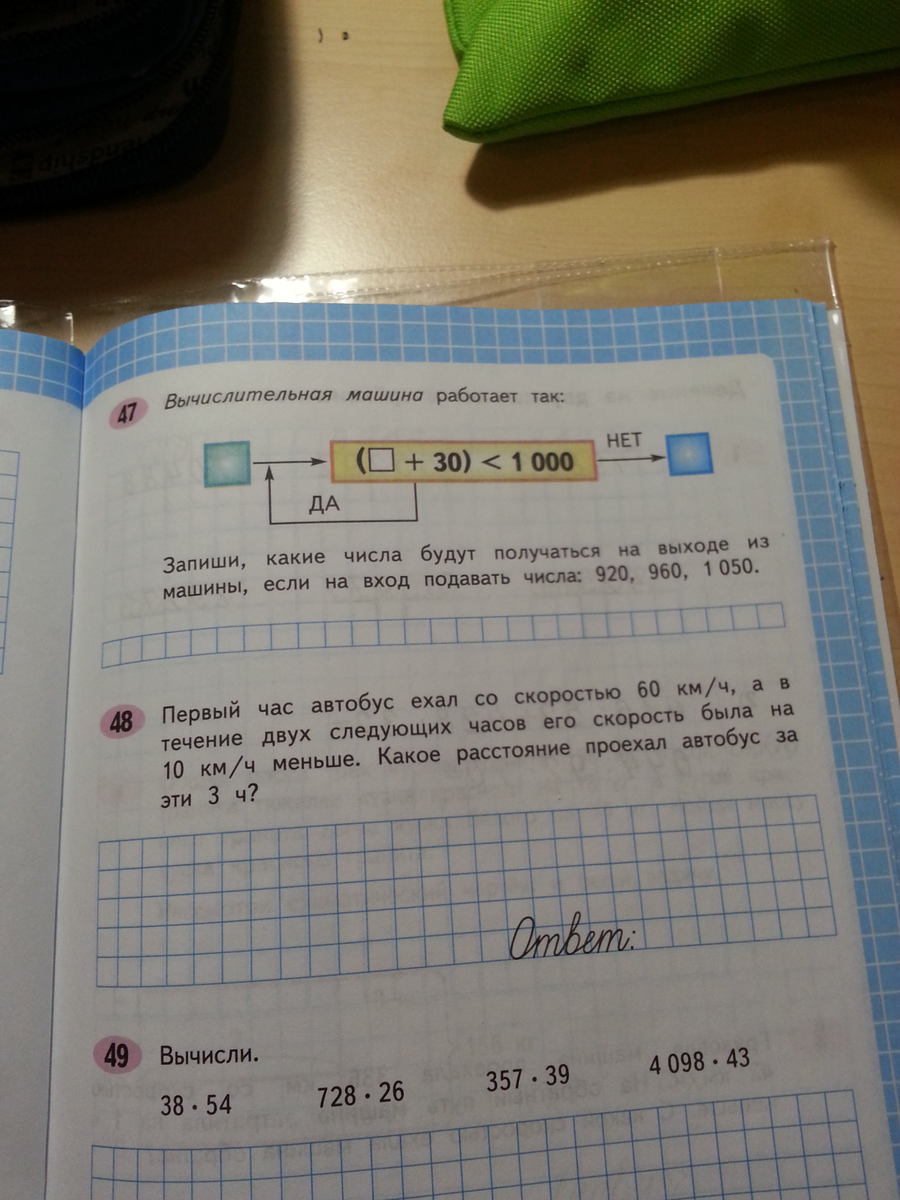 47 Вычислительная машина работает так:
(□ + 30) < 1 000
НЕТ
ДА
Запиши, какие числа будут получаться на выходе из
машины, если на вход подавать числа: 920, 960, 1 050.
48 Первый час автобус ехал со скоростью 60 км/ч, а в
течение двух следующих часов его скорость была на
10 км/ч меньше. Какое расстояние проехал автобус за
эти 3 ч?
Ответ:
49 Вычисли.
38 · 54 728 · 26 357 · 39 4 098 · 43